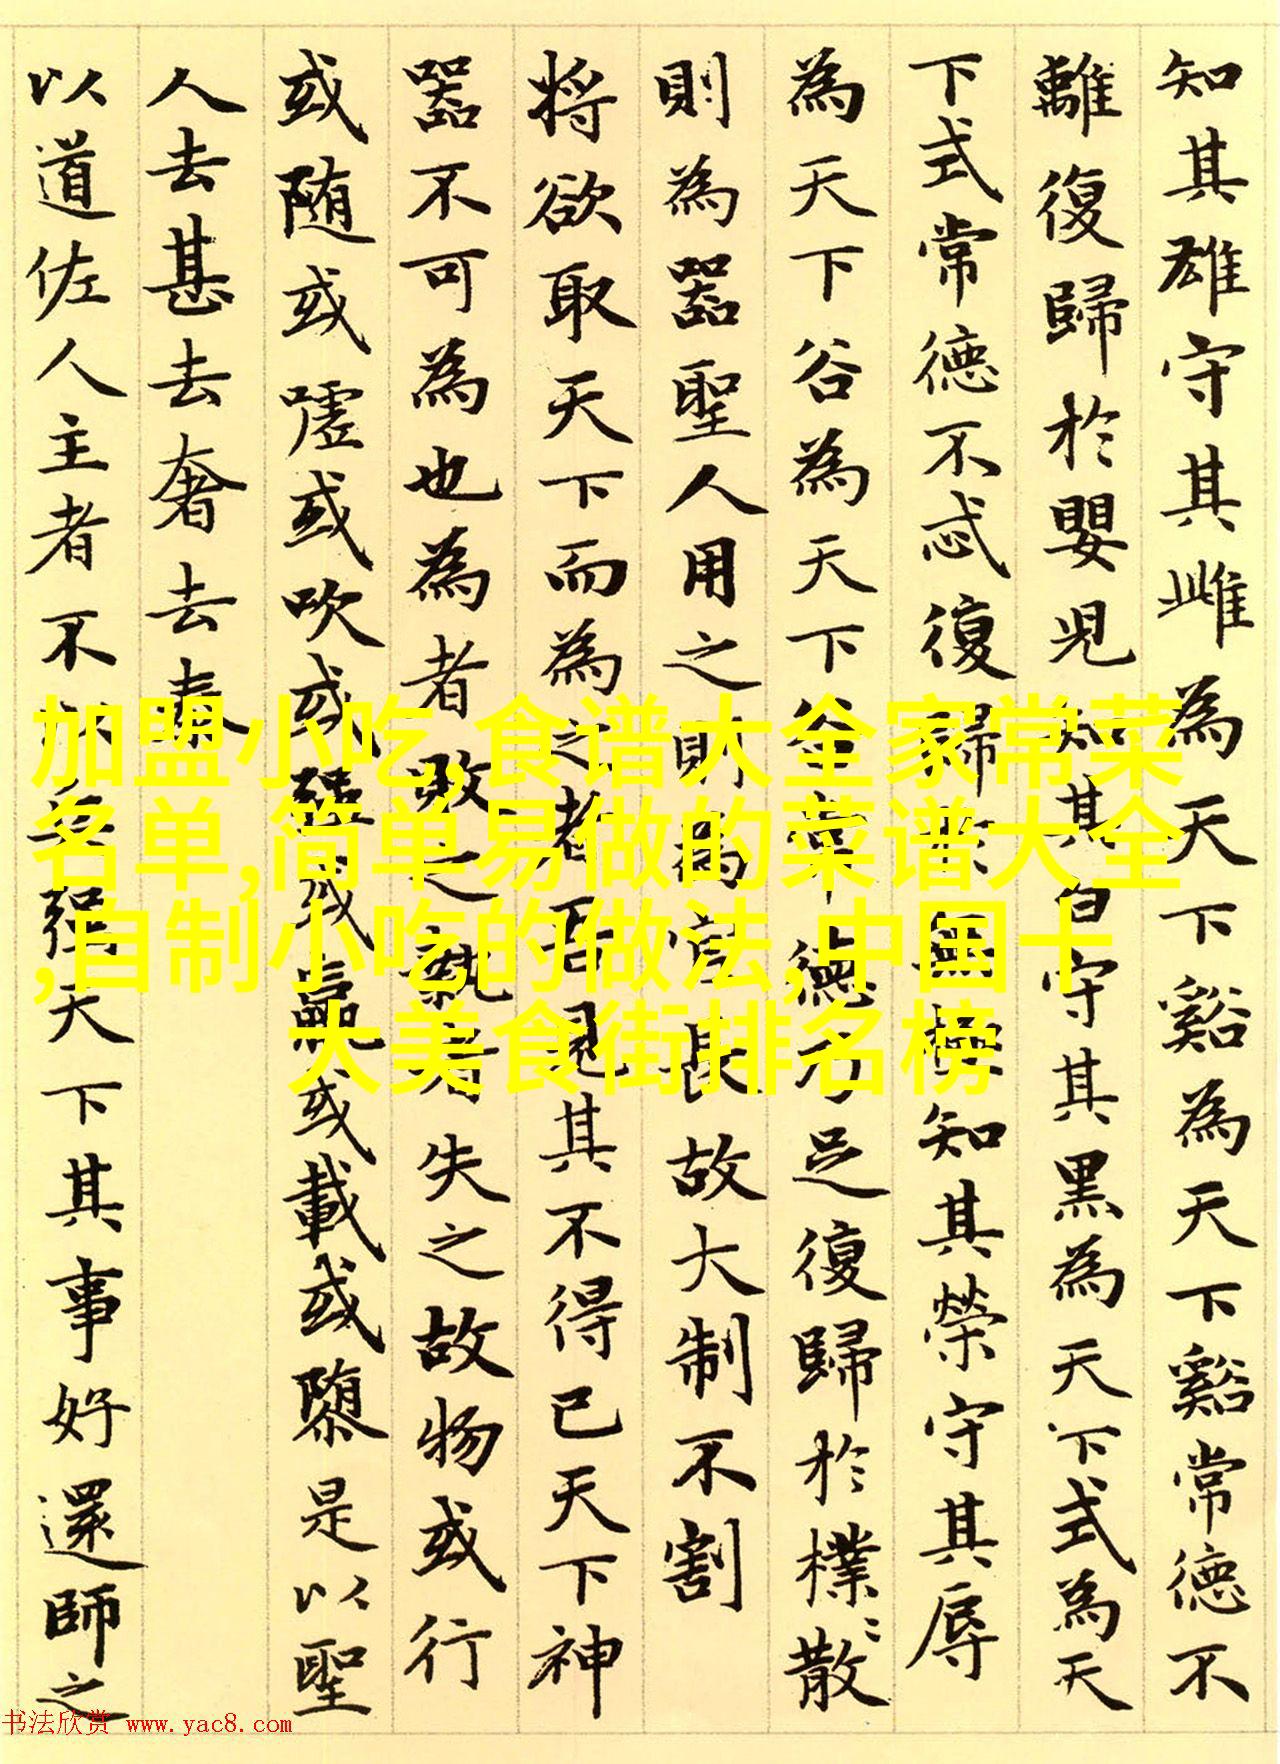 知其雄守其雌為天下谿為天下谿常德不
離復歸於嬰兒知其白守其黑為天下式為天
下式常德不忒復歸於無極知其榮守其辱
為天下谷為天下谷常德乃足復歸於樸〻散
則為器聖人用之則為官長故大制不割
将欲取天下而為之者吾見其不得已天下神
器不可為也為者敗之執者失之故物或行
或随或嘘或吹或強或羸或載或隳是以聖
人去甚去奢去泰
以道佐人主者不以兵强天下其事好還師之
加盟小吃,食谱大全家常菜
名单,简单易做的菜谱大全
,自制小吃的做法,中国十
大美食街排名榜
书法欣赏 www.yac8.com